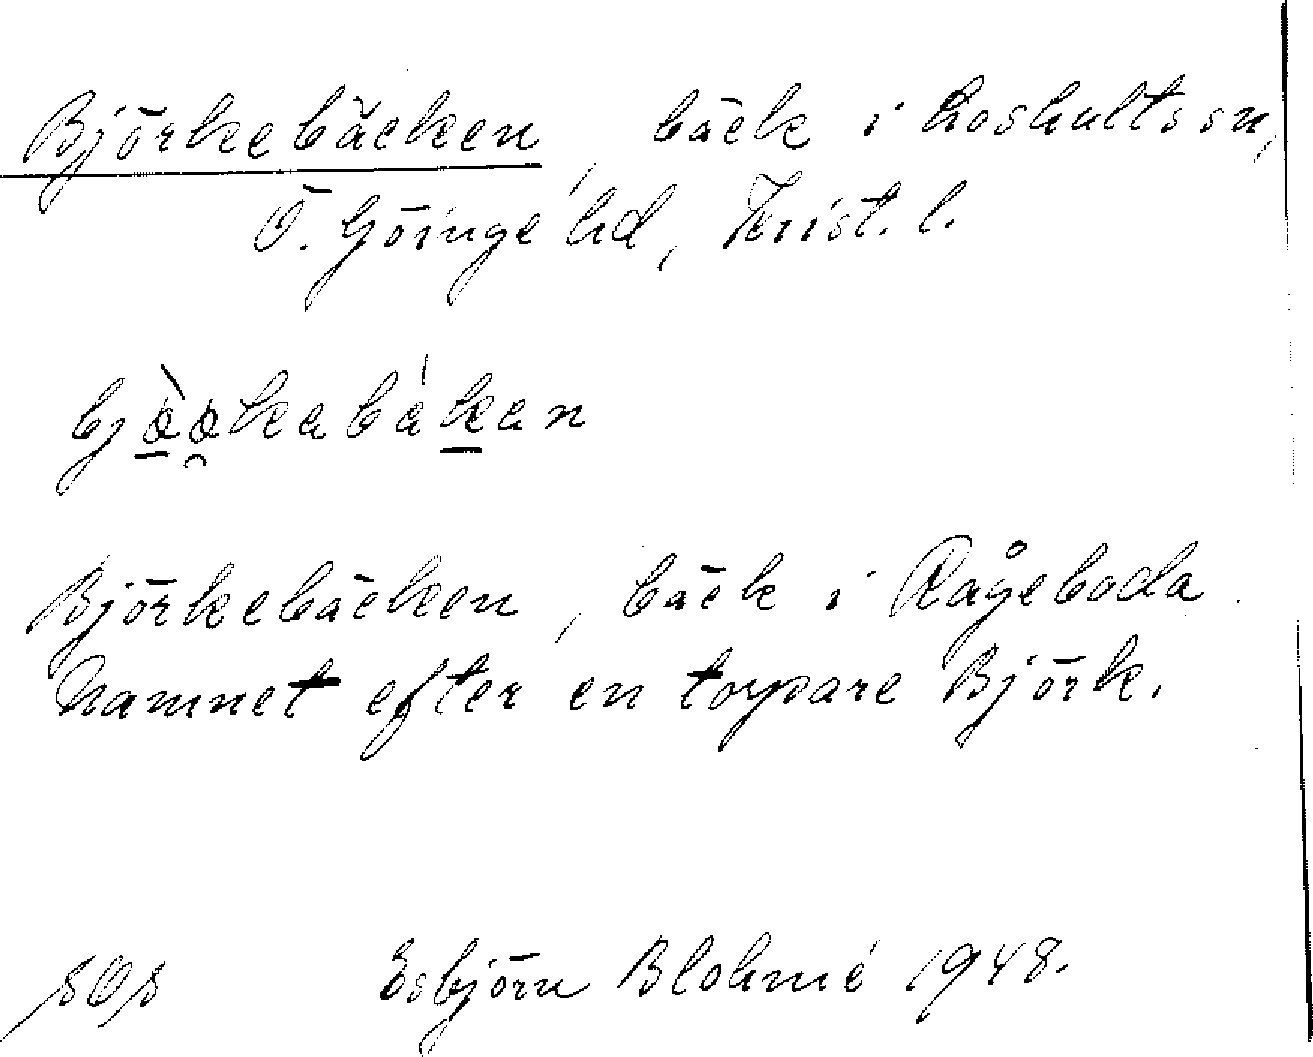 Björkebäcken, bäck i Loshults sn,
Ö. Göinge hd, Krist. l.
Björkebäcken, bäck i Rågeboda.
Namnet efter en torpare Björk.
Esbjörn Blohmé 1948.